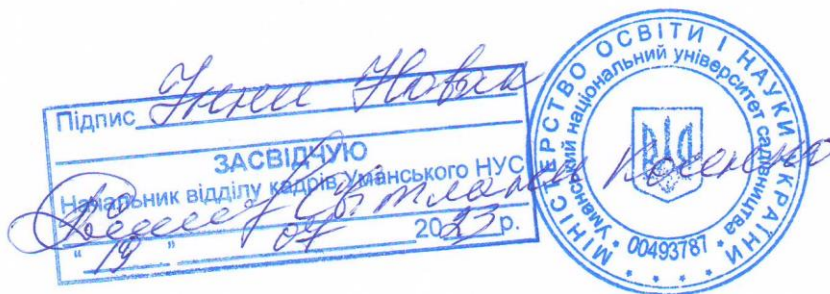 Підпис Інни Новак
ЗАСВІДЧУЮ
Начальник відділу кадрів Уманського НУС
Світлана
"19" 07 2023 р.
МІНІСТЕРСТВО ОСВІТИ І НАУКИ УКРАЇНИ
Уманський національний університет садівництва
* 00493787 *